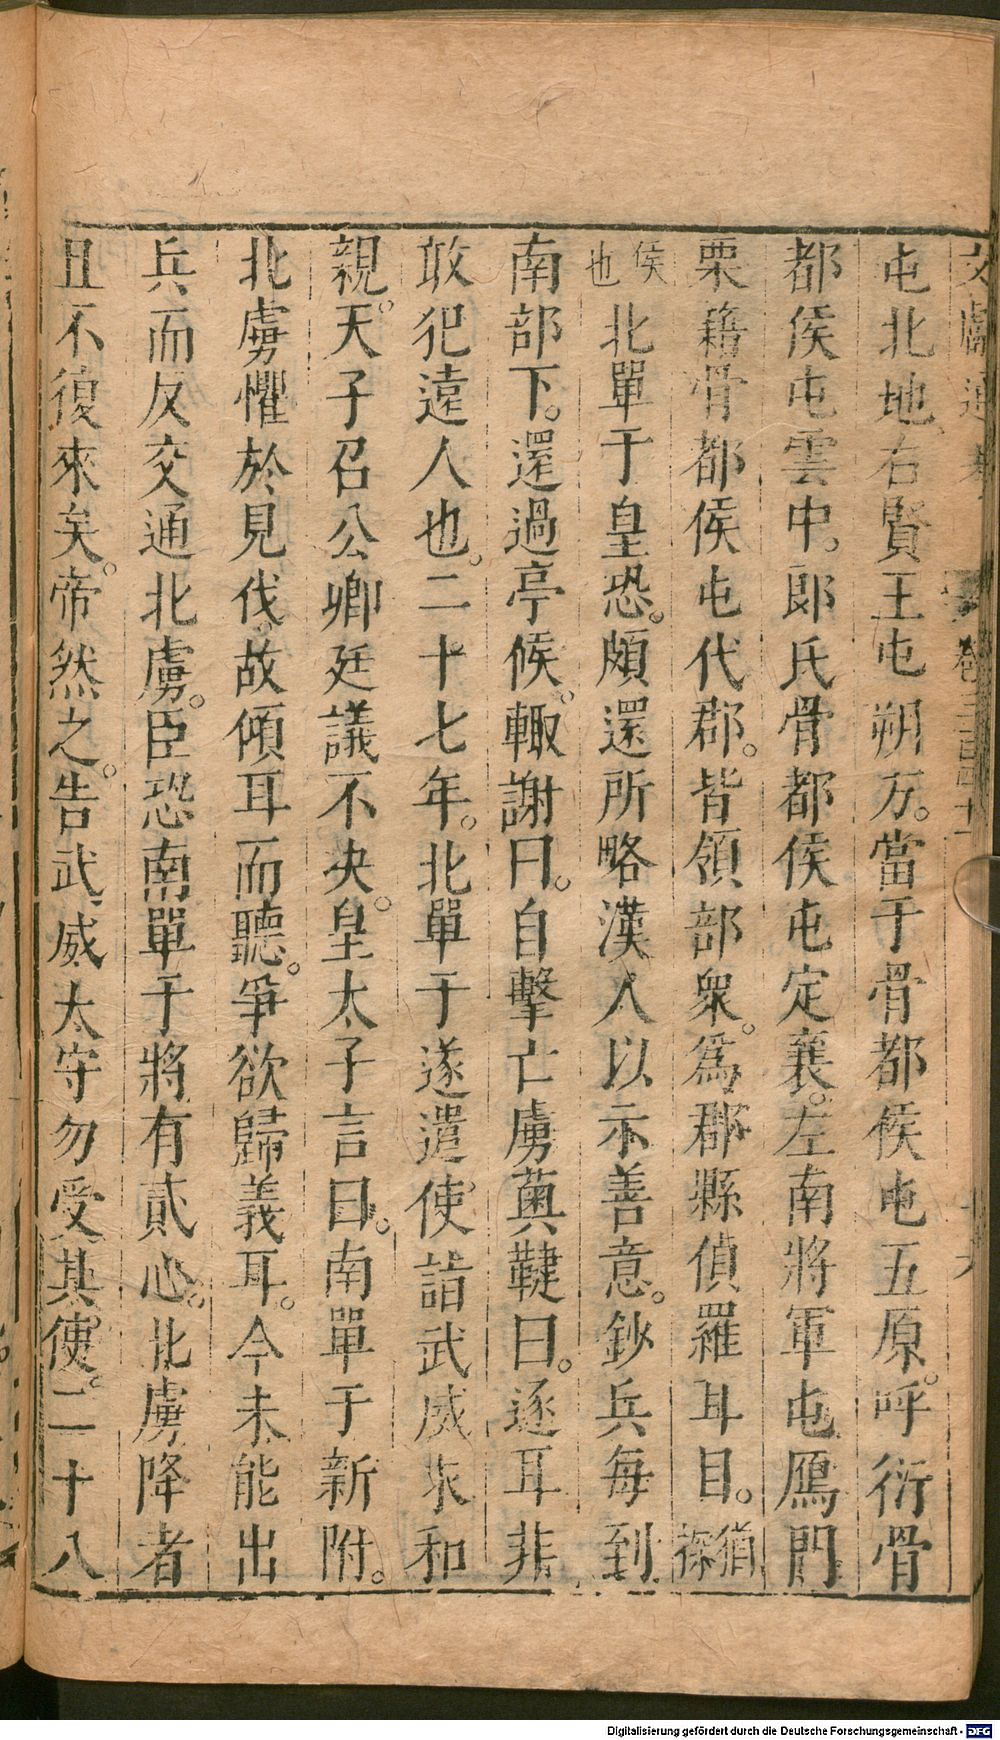 屯北地右賢王屯朔方。當于骨都侯屯五原。呼衍骨
都侯屯雲中。郎氏骨都侯屯定襄。左南將軍屯鴈門
栗籍骨都侯屯代郡。皆領部衆。爲郡縣偵羅耳目。猶探
侯也北單于皇恐。頗還所略漢人以示善意。鈔兵每到
南部下。還過亭候。輙謝曰。自擊亡虜薁鞬曰。逐耳非
敢犯遠人也。二十七年。北單于遂遣使詣武威求和
親。天子召公卿廷議不決。皇太子言曰。南單于新附。
北虜懼於見伐。故傾耳而聽。爭欲歸義耳。今未能出
兵而反交通北虜。臣恐南單于將有貳心。北虜降者
且不復來矣。帝然之。告武威太守勿受其使。二十八
Digitalisierung gefördert durch die Deutsche Forschungsgemeinschaft - DFG